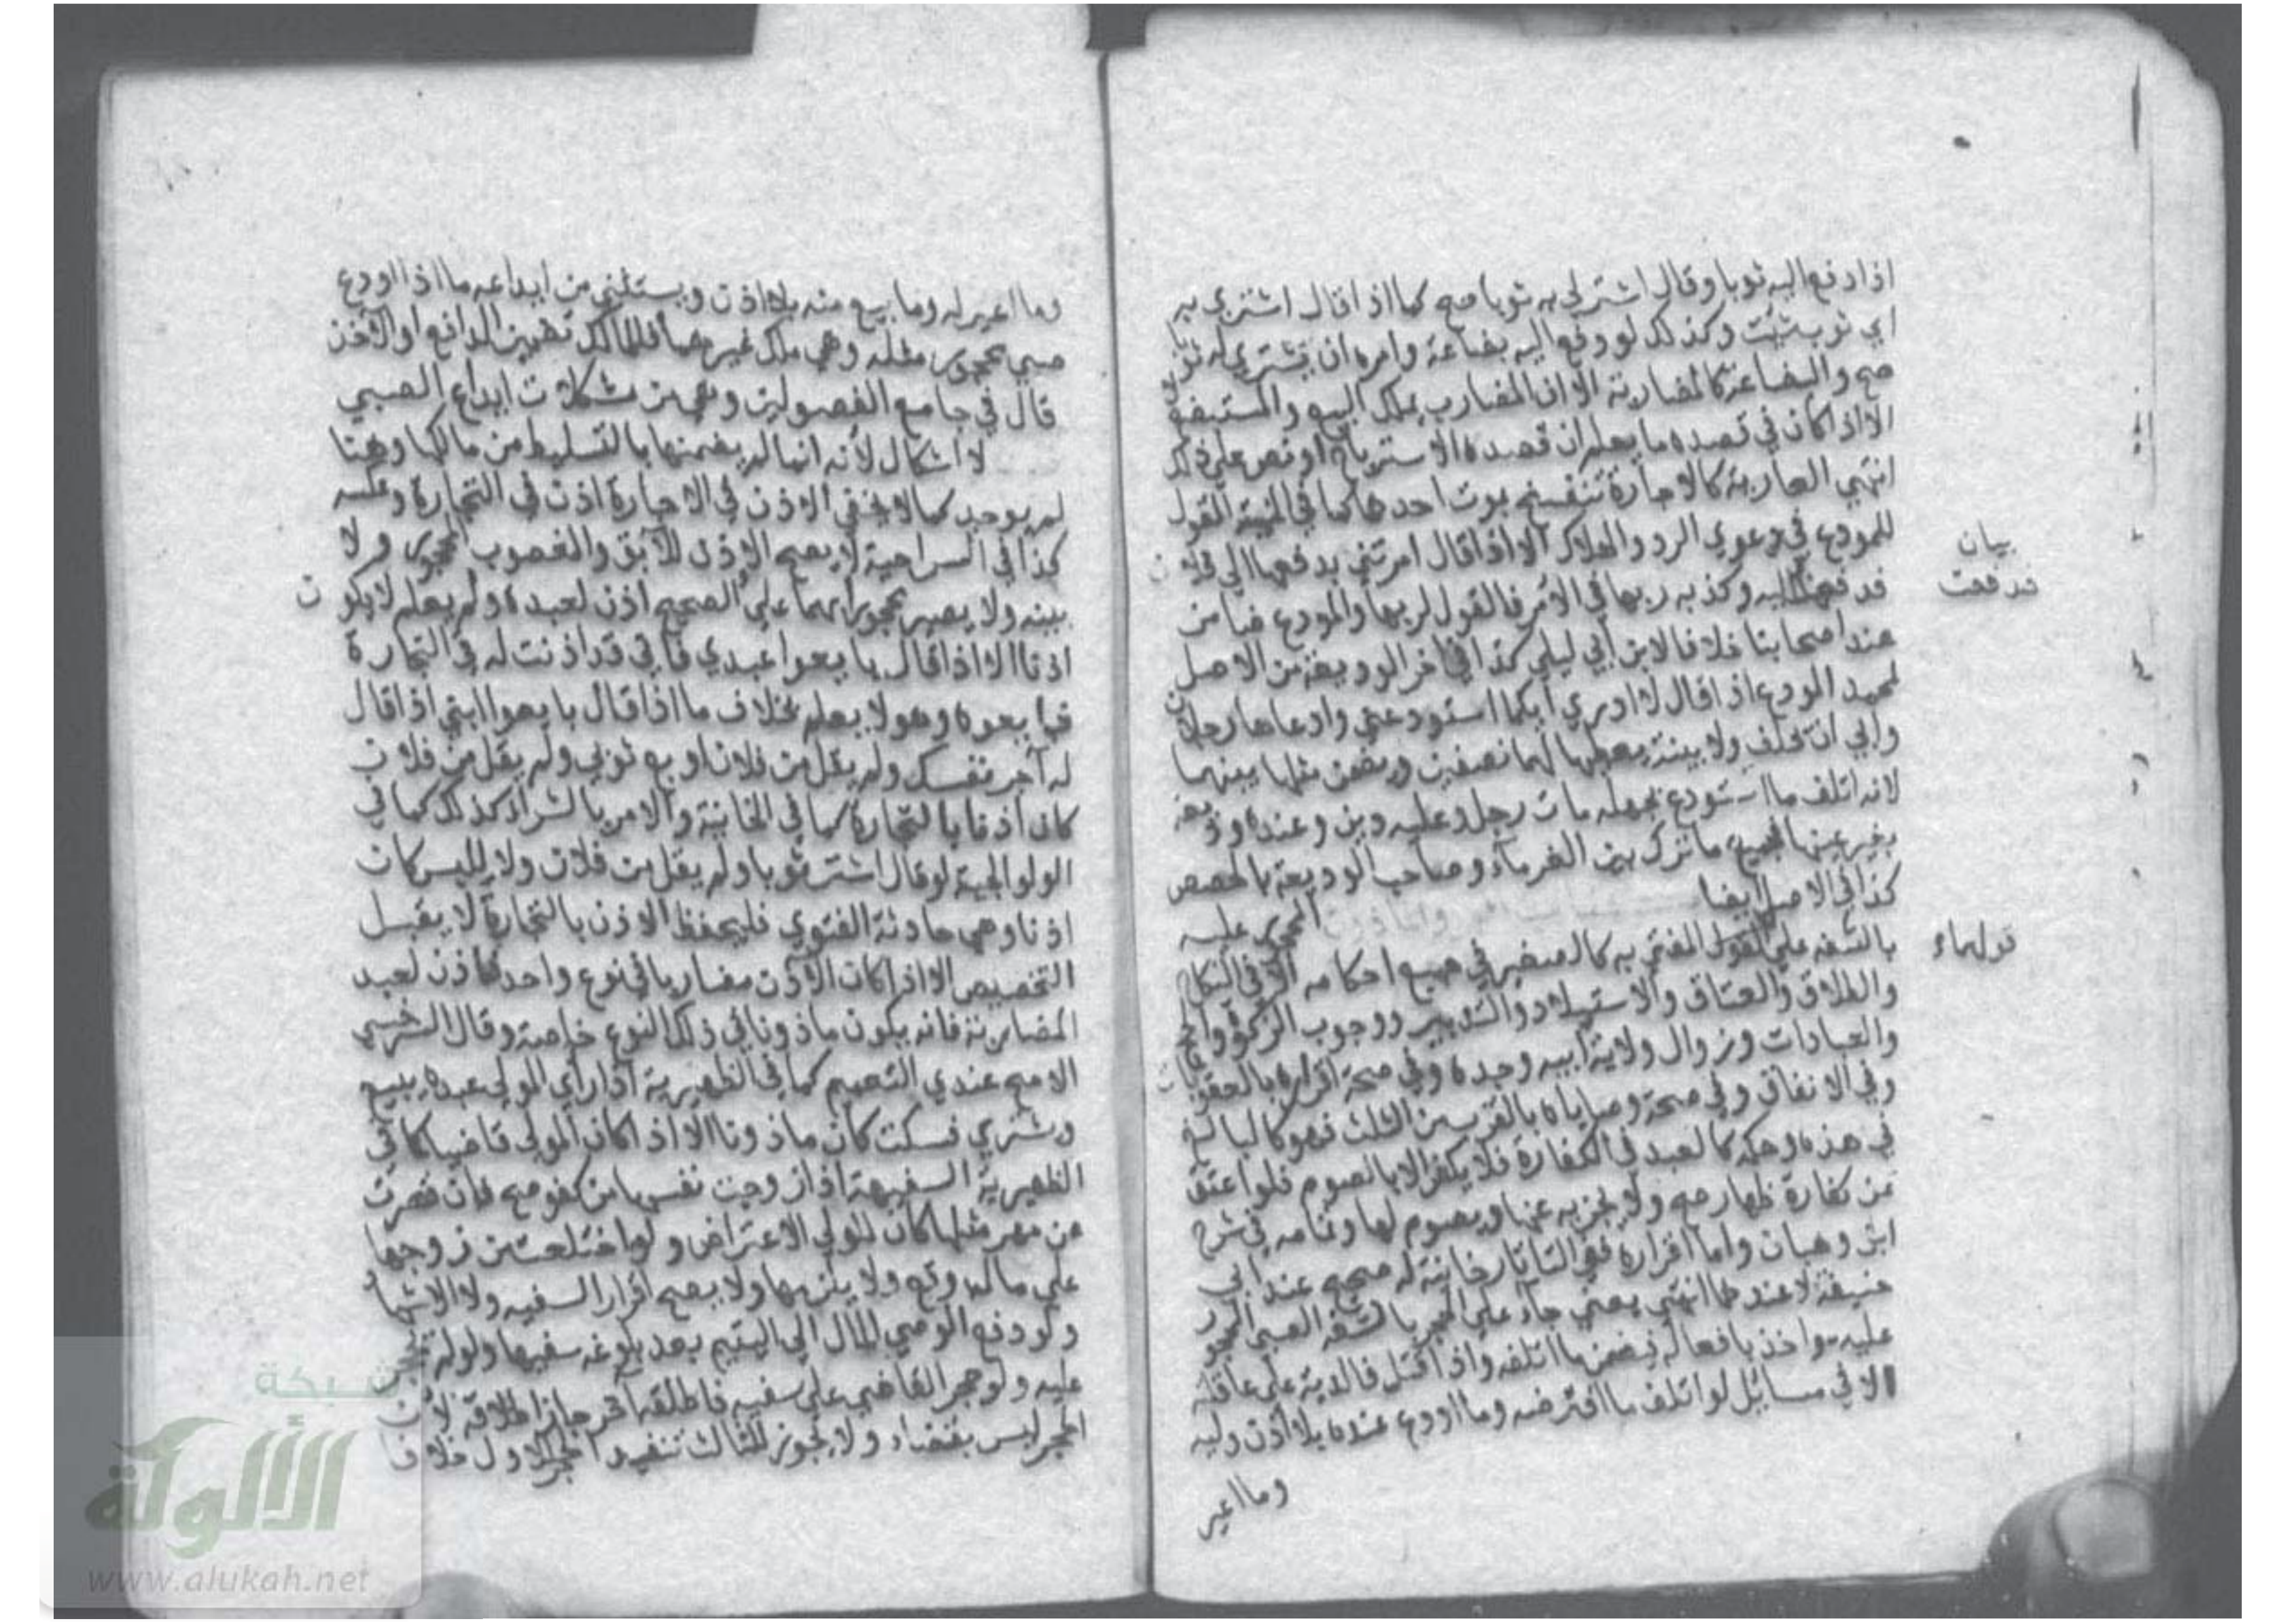 اذا دفع اليه ثوبا وقال اشتر لي به ثوبا صح كما اذا قال اشتري به
اي ثوب شئت وكذلك لو دفع اليه بضاعة وامره ان يشتري له ثوبا
صح والبضاعة كالمضاربة الا ان المضارب يملك البيع والمستبضع لا
الا اذا كان في قصده ما يعلم ان قصده الاسترباح او نص على ذلك
انتهي العارية كالاجارة تنفسخ بموت احدهما كما في المنية القول
للمودع في دعوي الرد والهلاك الا اذا قال امرتني بدفعها الي فلان
فدفعتها اليه وكذبه ربها في الامر فالقول لربها والمودع ضامن
عند اصحابنا خلافا لابن ابي ليلي كذا في اخر الوديعة من الاصل
لمحمد المودع اذا قال لا ادري ايكما استودعني وادعاها رجلان
وابي ان تحلف ولا بينة يعطيها لهما نصفين ويضمن مثلها بينهما
لانه اتلف ما استودع بجهله مات رجل وعليه دين وعنده وديعة
بغير عينها فجميع ما ترك بين الغرماء وصاحب الوديعة بالحصص
كذا في الاصل ايضا
المحجور عليه
بالسفه علي القول المفتي به كالصغير في جميع احكامه الا في النكاح
والطلاق والعتاق والاستيلاد والتدبير ووجوب الزكوة والحج
والعبادات وزوال ولاية ابيه وجده وفي صحة اقراره بالعقوبات
وفي الانفاق وفي صحة وصاياه بالقرب من الثلث فهو كالبالغ
في هذه وحكمه كالعبد في الكفارة فلا يكفر الا بالصوم فلو اعتق
عن كفارة ظهار صح ولا يجزيه عنها ويصوم لها وتمامه في شرح
ابن وهبان واما اقراره ففي التاتارخانية له صحيح عند ابي
حنيفة لا عندهما انتهي يعني جاء علي الحجر بالسفه الصبي المحجور
عليه مواخذ بافعاله فيضمن ما اتلفه واذا قتل فالدية علي عاقلته
الا في مسايل لو اتلف ما اقترضه وما اودع عنده بلا اذن وليه
وما اعير
بيان
فدفعت
قولهما
وما اعير له وما بيع منه بلا اذن ويستثني من ايداعه ما اذا اودع
صبي محجور مثله وهي ملك غيرهما فللمالك تضمين الدافع او الاخذ
قال في جامع الفصولين وهي من مشكلات ايداع الصبي
لا اشكال لانه انما لم يضمنها بالتسليط من مالكها وهنا
لم يوجد كما لا يخفي الاذن في الاجارة اذن في التجارة وعكسه
كذا في السراجية لا يصح الاذن للآبق والمغصوب المحجور ولا
بينه ولا يصير محجورا بهما علي الصحيح اذن لعبده ولم يعلم لا يكون
اذنا الا اذا قال بايعوا عبدي فاني قد اذنت له في التجارة
فبايعوه وهو لا يعلم بخلاف ما اذا قال بايعوا ابني اذا قال
له آجر نفسك ولم يقل من فلان او بع ثوبي ولم يقل من فلان
كان اذنا بالتجارة كما في الخانية والامر بالشراء كذلك كما في
الولوالجية لو قال اشتر ثوبا ولم يقل من فلان ولا لليس كان
اذنا وهي حادثة الفتوي فليحفظ الاذن بالتجارة لا يقبل
التخصيص الا اذا كان الاذن مضاربا في نوع واحد فاذن لعبد
المضاربة فانه يكون ماذونا في ذلك النوع خاصة وقال السرخسي
الاصح عندي التعميم كما في الظهيرية اذا راي المولي عبده يبيع
ويشتري فسكت كان ماذونا الا اذا كان المولي قاضيا كما في
الظهيرية السفيهة اذا زوجت نفسها من كفو صح فان قصرت
عن مهر مثلها كان للولي الاعتراض ولو اختلعت من زوجها
علي مال وقع ولا يلزمها ولا يصح اقرار السفيه ولا الاشهاد
ولو دفع الوصي المال الي اليتيم بعد بلوغه سفيها ولو لم يحجر
عليه ولو حجر القاضي علي سفيه فاطلقه آخر جاز اطلاقه لان
الحجر ليس بقضاء ولا يجوز للثالث تنفيذ الحجر الاول خلافا
شبكة
الألوكة
www.alukah.net